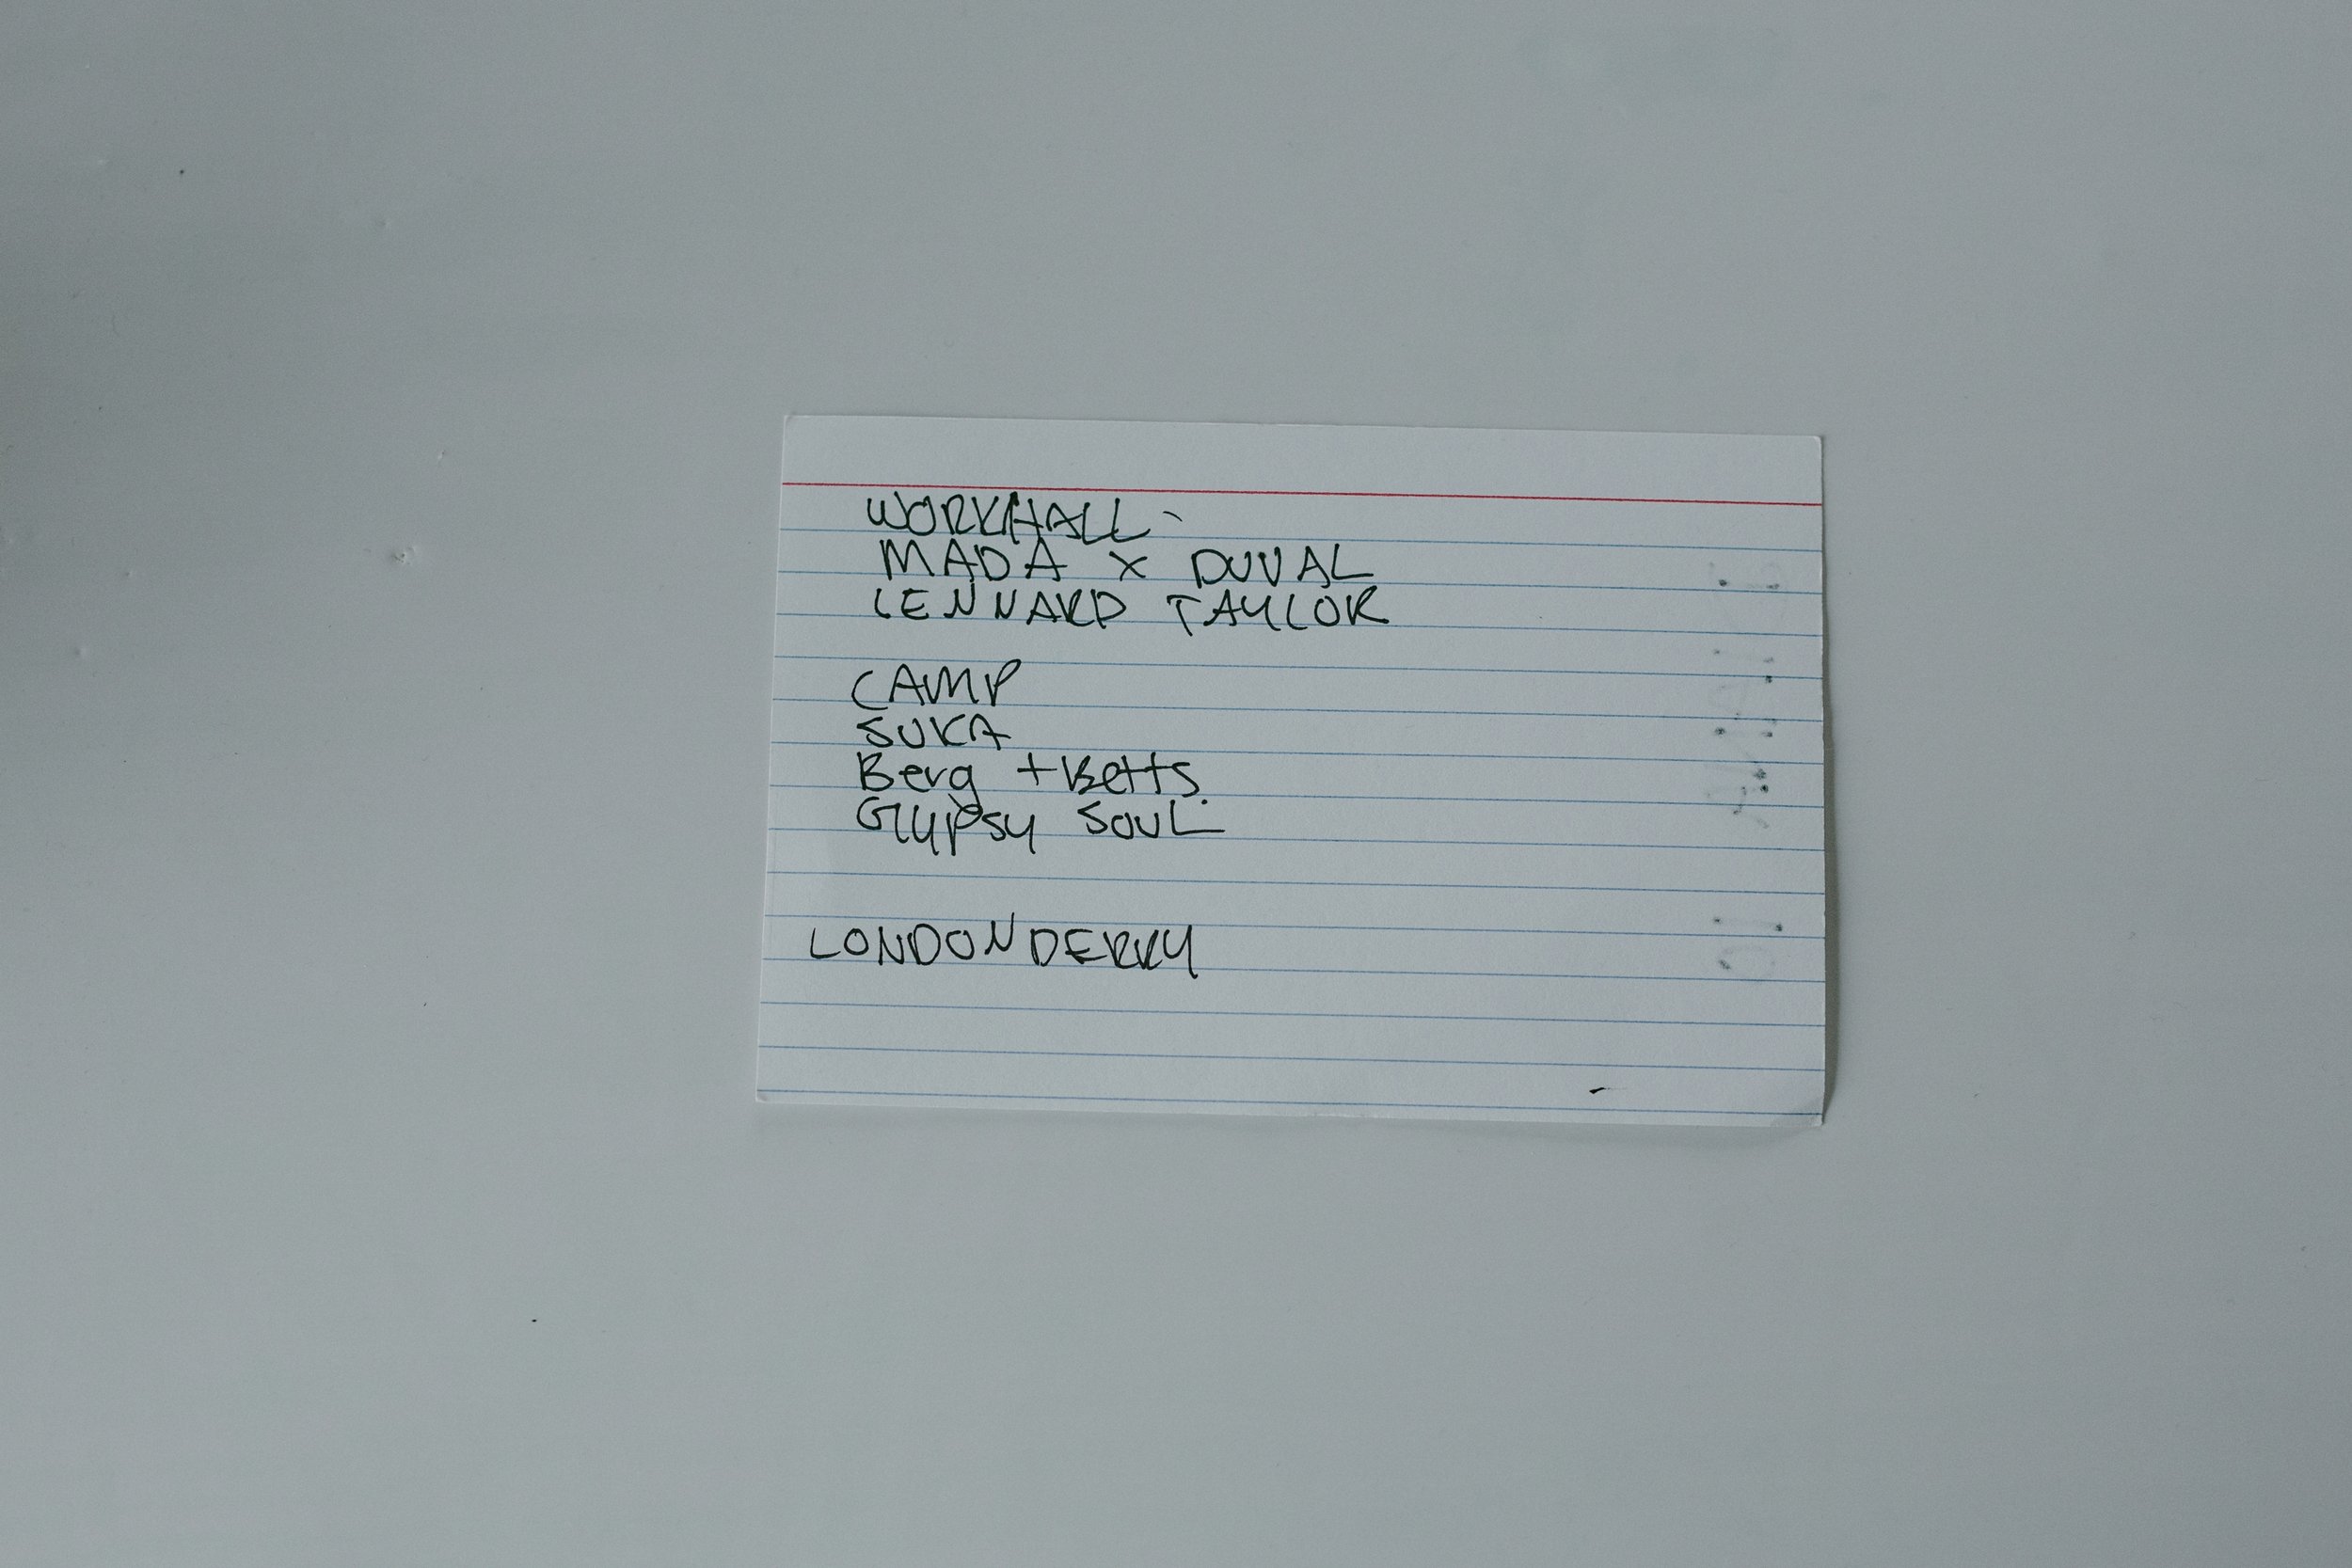 WORKHALL -
MADA X DUVAL
LENNARD TAYLOR
CAMP
SUKA
Berg + Betts.
Gypsy SOUL
LONDONDERRY